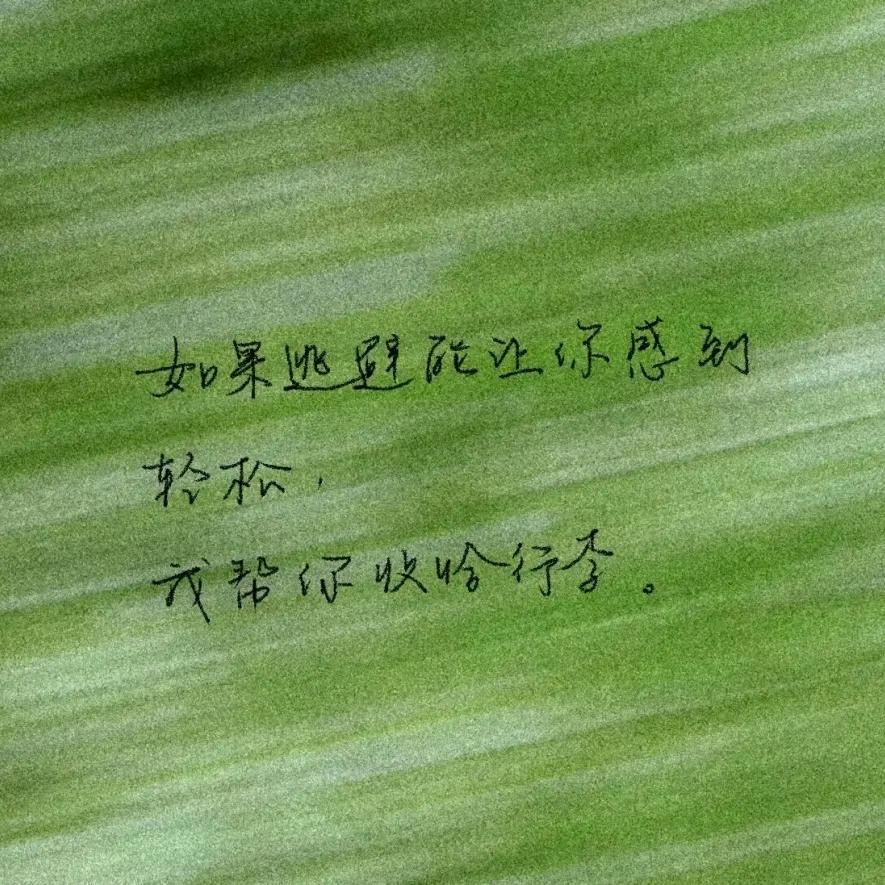 如果逃避能让你感到
轻松，
我帮你收拾行李。